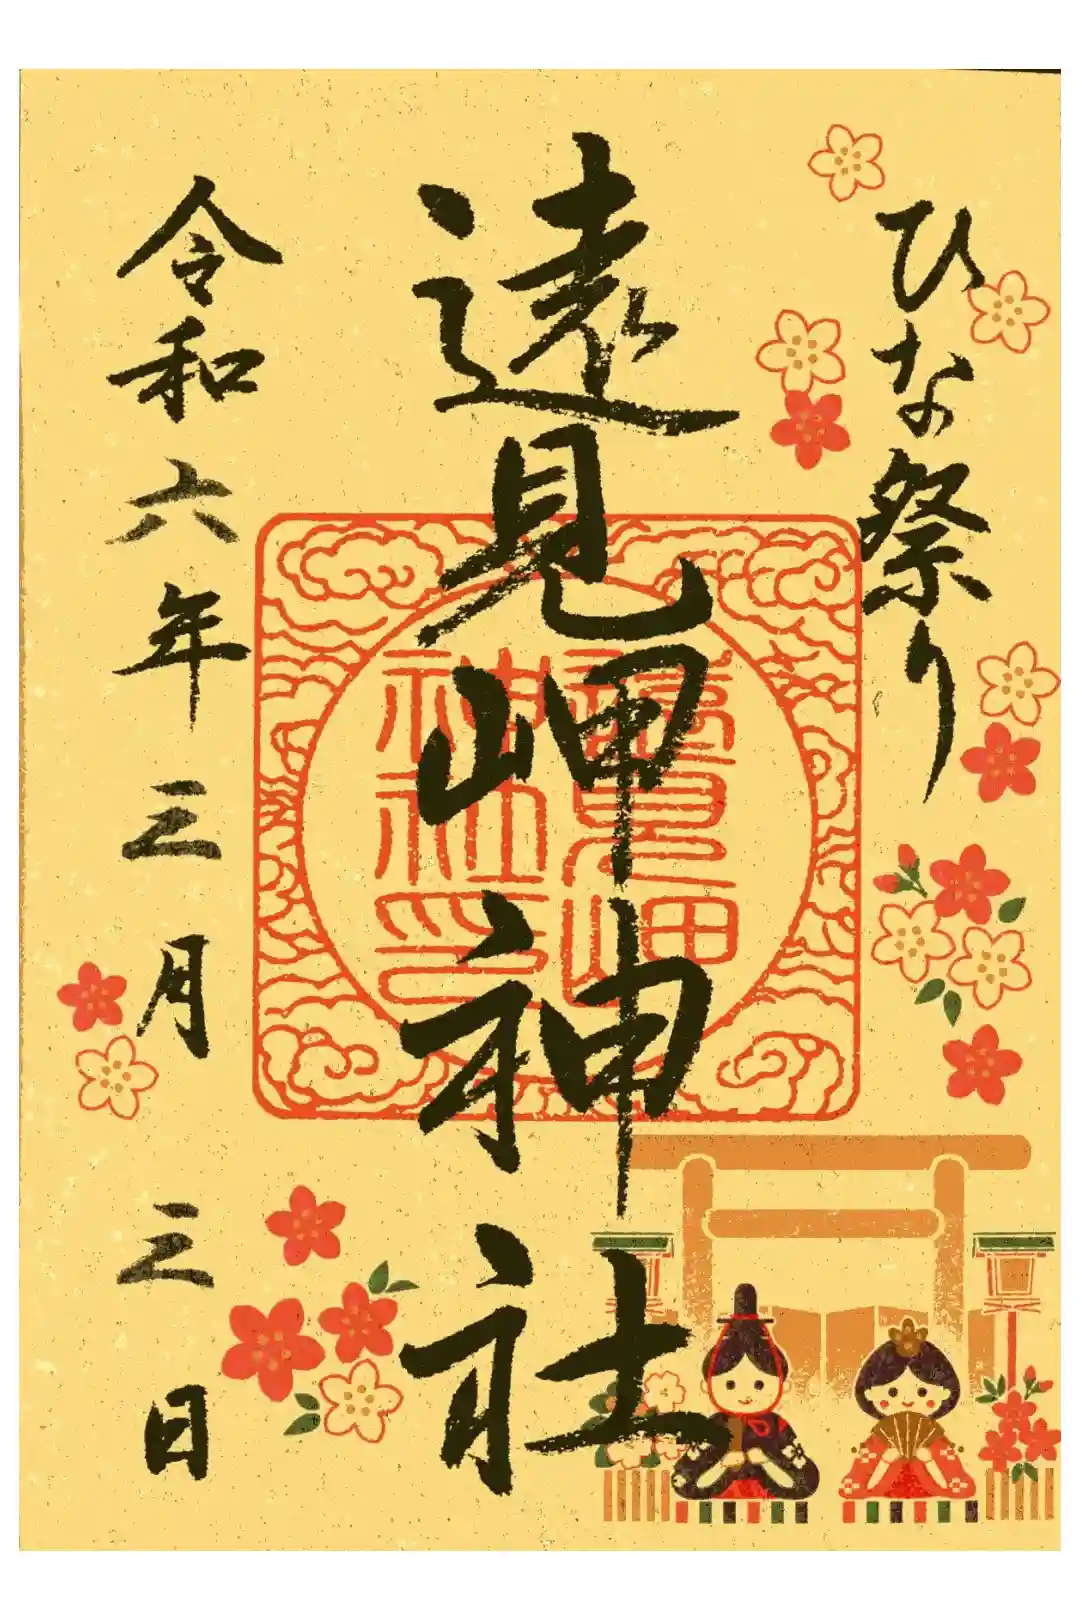 ひな祭り
遠見岬神社
遠見岬
神社印
令和六年三月三日